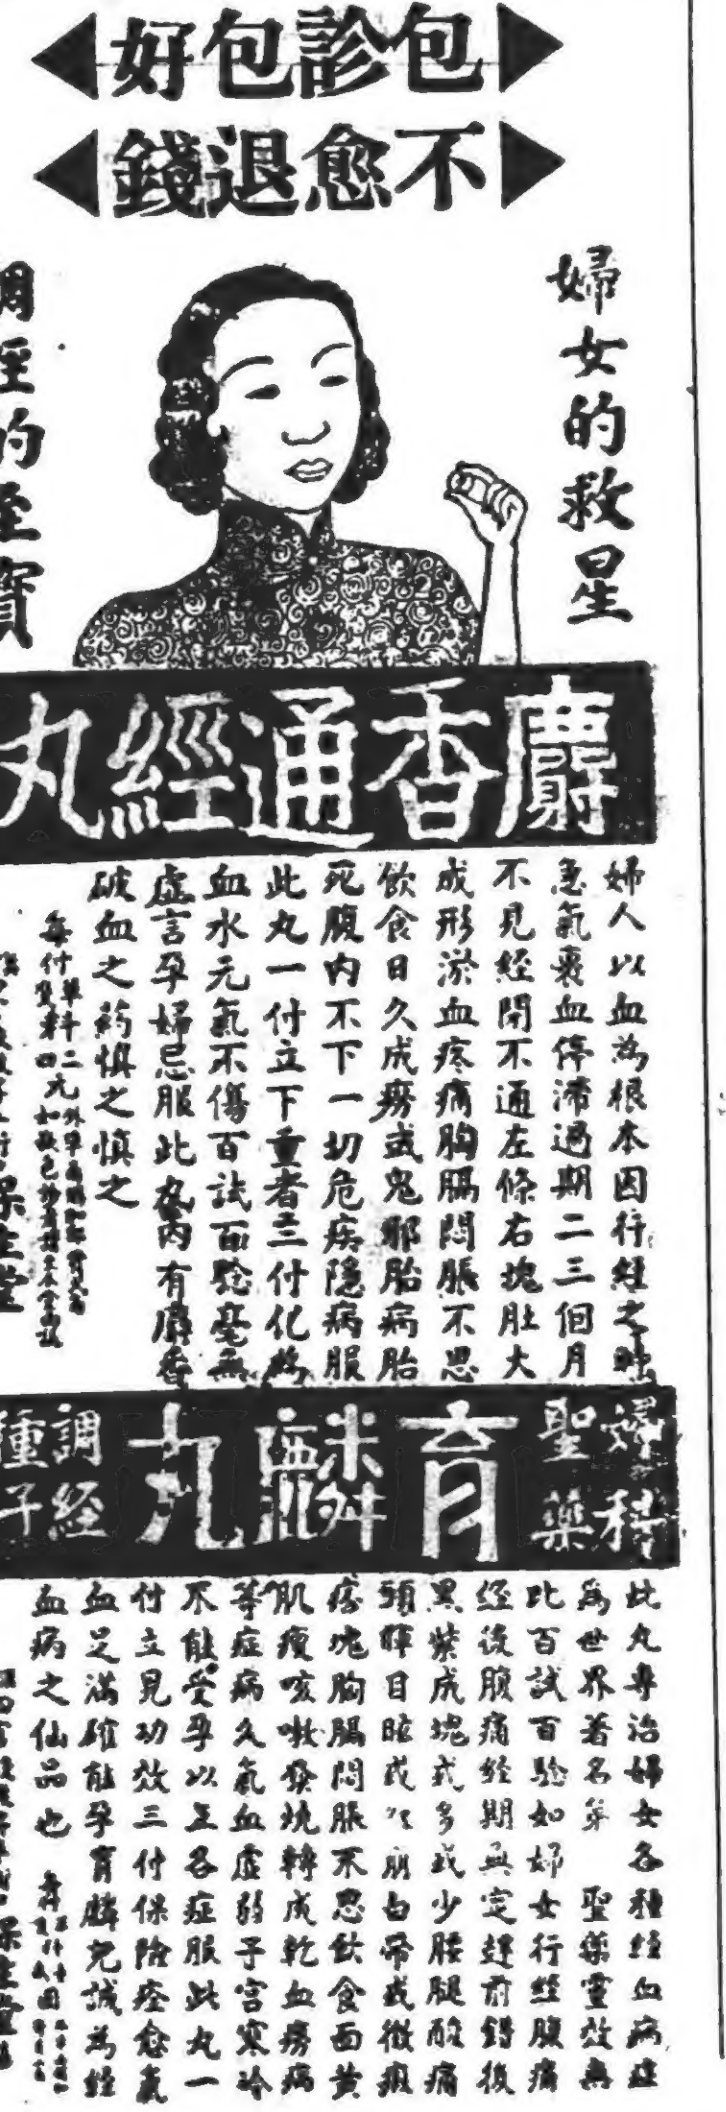 包診包好
不愈退錢
婦女的救星
調經的至寶
麝香通經丸
婦人以血為根本因行經之時
急氣裹血停滯過期二三個月
不見經閉不通左條右塊肚大
成形淤血疼痛胸膈悶脹不思
飲食日久成癆或鬼邪胎病胎
死腹內不下一切危疾隱病服
此丸一付立下重者三付化為
血水元氣不傷百試百驗毫無
虛言孕婦忌服此丸內有麝香
破血之药慎之慎之
每付單料二元
雙料四元
保生堂
婦科
聖藥
育麟丸
調経
種子
此丸專治婦女各種經血病症
為世界著名第 聖藥靈效無
比百試百驗如婦女行經腹痛
經後腹痛經期無定趕前錯後
黑紫成塊或多或少腰腿酸痛
頭暈目眩或 崩白帶或徵瘕
痞塊胸膈悶脹不思飲食面黄
肌瘦咳嗽發燒轉成乾血癆病
等症病久氣血虛弱子宮寒冷
不能受孕以上各症服此丸一
付立見功效三付保險痊愈氣
血足滿確能孕育麟児誠為經
血病之仙品也
保生堂